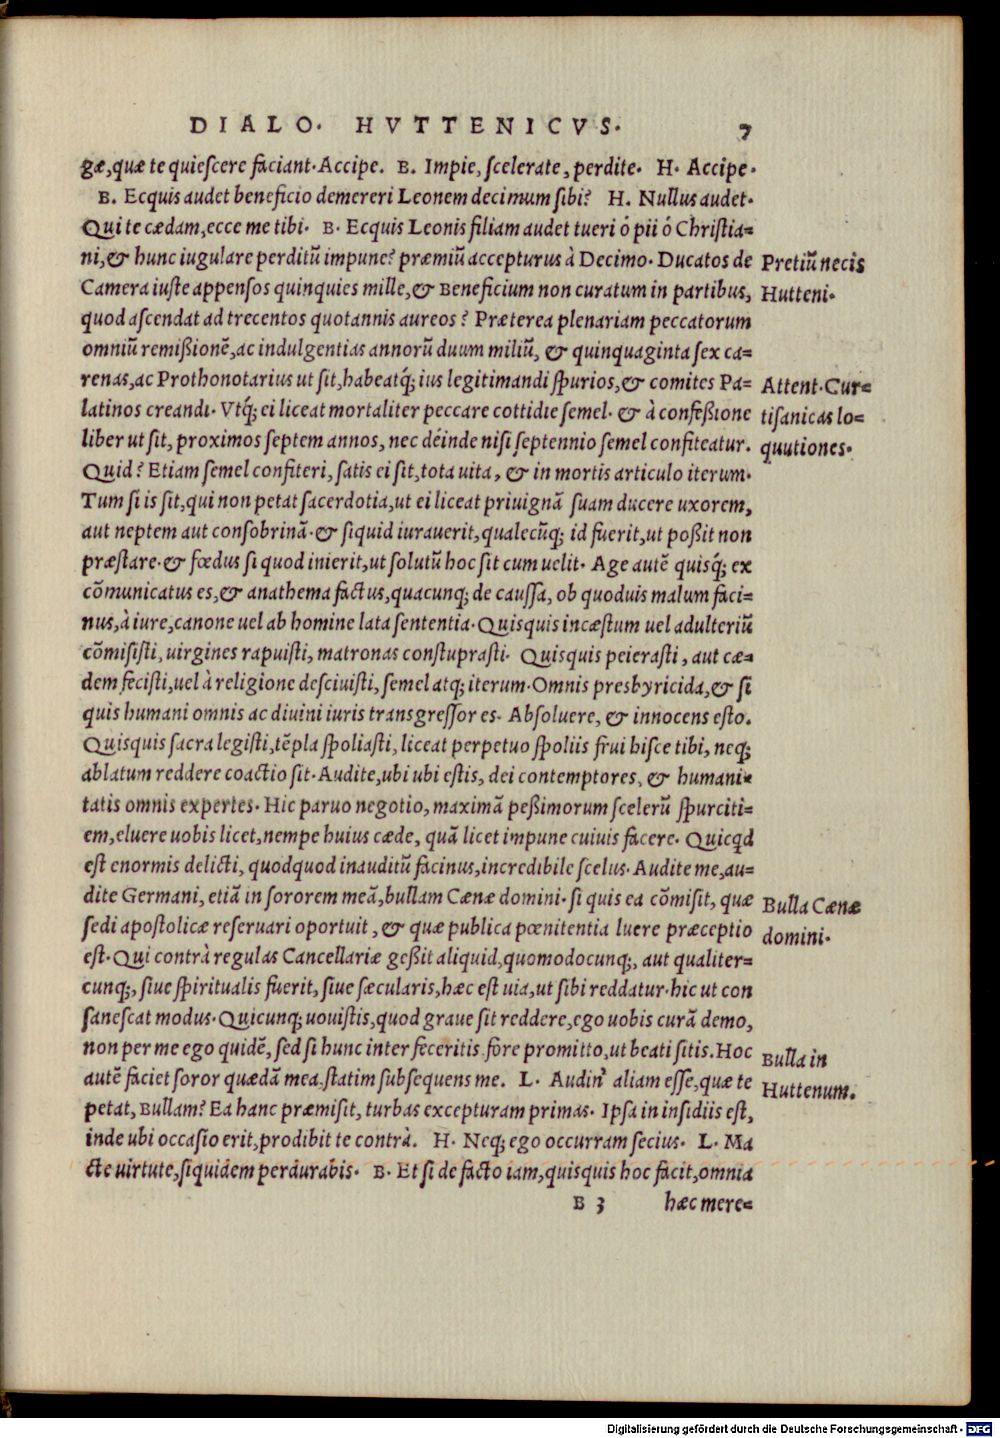 DIALO. HVTTENICVS. 7
gæ, quæ te quieſcere faciant. Accipe. B. Impie, ſcelerate, perdite. H. Accipe.
B. Ecquis audet beneficio demereri Leonem decimum ſibi? H. Nullus audet.
Qui te cædam, ecce me tibi. B. Ecquis Leonis filiam audet tueri ó pii ó Chriſtia=
ni, & hunc iugulare perditū impune? præmiū accepturus à Decimo. Ducatos de
Camera iuſte appenſos quinquies mille, & Beneficium non curatum in partibus,
quod aſcendat ad trecentos quotannis aureos? Præterea plenariam peccatorum
omniū remißionē, ac indulgentias annorū duum miliū, & quinquaginta ſex ca=
renas, ac Prothonotarius ut ſit, habeatq́; ius legitimandi ſpurios, & comites Pa=
latinos creandi. Vtq́; ei liceat mortaliter peccare cottidie ſemel. & à confeßione
liber ut ſit, proximos ſeptem annos, nec déinde niſi ſeptennio ſemel confiteatur.
Quid? Etiam ſemel confiteri, ſatis ei ſit, tota uita, & in mortis articulo iterum.
Tum ſi is ſit, qui non petat ſacerdotia, ut ei liceat priuignā ſuam ducere uxorem,
aut neptem aut conſobrinā. & ſiquid iurauerit, qualecūq; id fuerit, ut poßit non
præſtare. & fœdus ſi quod inierit, ut ſolutū hoc ſit cum uelit. Age autē quisq́; ex
cōmunicatus es, & anathema factus, quacunq; de cauſſa, ob quoduis malum faci=
nus, à iure, canone uel ab homine lata ſententia. Quisquis incæſtum uel adulteriū
cōmiſiſti, uirgines rapuiſti, matronas conſtupraſti. Quisquis peieraſti, aut cæ=
dem feciſti, uel à religione deſciuiſti, ſemel atq; iterum. Omnis presbyricida, & ſi
quis humani omnis ac diuini iuris transgreſſor es. Abſoluere, & innocens eſto.
Quisquis ſacra legiſti, tēpla ſpoliaſti, liceat perpetuo ſpoliis frui hiſce tibi, neq;
ablatum reddere coactio ſit. Audite, ubi ubi eſtis, dei contemptores, & humani=
tatis omnis expertes. Hic paruo negotio, maximā peßimorum ſcelerū ſpurciti=
em, eluere uobis licet, nempe huius cæde, quā licet impune cuiuis facere. Quicq̄d
eſt enormis delicti, quodquod inauditū facinus, incredibile ſcelus. Audite me, au=
dite Germani, etiā in ſororem meā, bullam Cænæ domini. ſi quis ea cōmiſit, quæ
ſedi apoſtolicæ reſeruari oportuit, & quæ publica pœnitentia luere præceptio
eſt. Qui contrà regulas Cancellariæ geßit aliquid, quomodocunq;, aut qualiter=
cunq;, ſiue ſpiritualis fuerit, ſiue ſæcularis, hæc eſt uia, ut ſibi reddatur. hic ut con
ſaneſcat modus. Quicunq; uouiſtis, quod graue ſit reddere, ego uobis curā demo,
non per me ego quidē, ſed ſi hunc inter feceritis fore promitto, ut beati ſitis. Hoc
autē faciet ſoror quædā mea ſtatim ſubſequens me. L. Audin' aliam eſſe, quæ te
petat, Bullam? Ea hanc præmiſit, turbas excepturam primas. Ipſa in inſidiis eſt,
inde ubi occaſio erit, prodibit te contrà. H. Neq; ego occurram ſecius. L. Ma
cte uirtute, ſiquidem perdurabis. B. Et ſi de facto iam, quisquis hoc facit, omnia
B 3 hæc mere=
Pretiū necis
Hutteni.
Attent. Cur=
tiſanicas lo=
quutiones.
Bulla Cænæ
domini.
Bulla in
Huttenum.
Digitalisierung gefördert durch die Deutsche Forschungsgemeinschaft - DFG